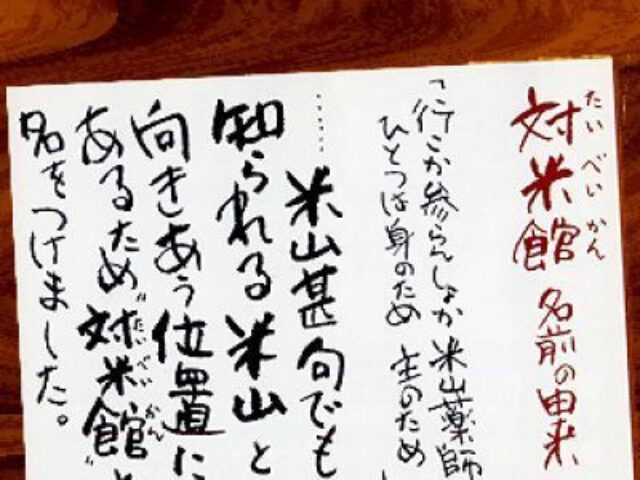 対米館 名前の由来
たいべいかん
「行こか参らんしょか 米山薬師
ひとつは身のため 主のため
……米山甚句でも
知られる米山と
向きあう位置に
あるため〝対米館〟と
たいべいかん
名をつけました。